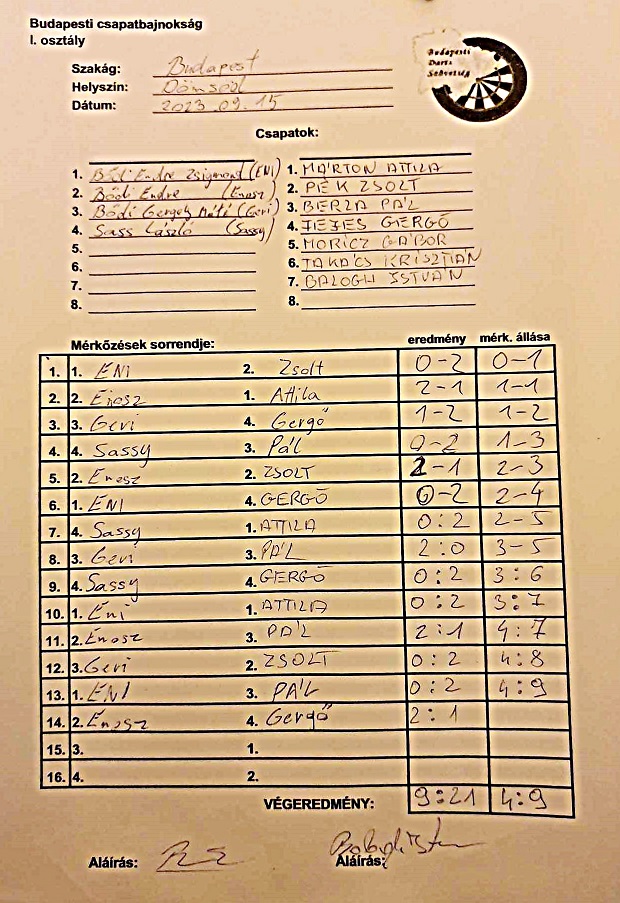 Budapesti csapatbajnokság
I. osztály
Budapesti
Darts
Szövetség
Szakág: Budapest
Helyszín: Dömsöd
Dátum: 2023.09.15
Csapatok:
1. Bődi Endre Zsigmond (ENI) 1. MÁRTON ATTILA
2. Bődi Endre (Enosz) 2. PÉK ZSOLT
3. Bődi Gergely Máté (Geri) 3. BERZA PÁL
4. Sass László (Sassy) 4. JEJES GERGŐ
5. 5. MORICZ GÁBOR
6. 6. TAKÁCS KRISZTIÁN
7. 7. BALOGH ISTVÁN
8. 8.
Mérkőzések sorrendje: eredmény mérk. állása
1. 1. ENI 2. Zsolt 0-2 0-1
2. 2. Enosz 1. Attila 2-1 1-1
3. 3. Geri 4. Gergő 1-2 1-2
4. 4. Sassy 3. Pál 0-2 1-3
5. 2. Enosz 2. ZSOLT 2-1 2-3
6. 1. ENI 4. GERGŐ 0-2 2-4
7. 4. Sassy 1. ATTILA 0:2 2-5
8. 3. Geri 3. PÁL 2:0 3-5
9. 4. Sassy 4. GERGŐ 0:2 3:6
10. 1. Eni 1. ATTILA 0:2 3:7
11. 2. Enosz 3. PÁL 2:1 4:7
12. 3. Geri 2. ZSOLT 0:2 4:8
13. 1. ENI 3. PÁL 0:2 4:9
14. 2. Enosz 4. Gergő 2:1
15. 3. 1.
16. 4. 2.
VÉGEREDMÉNY: 9:21 4:9
Aláírás: Aláírás: